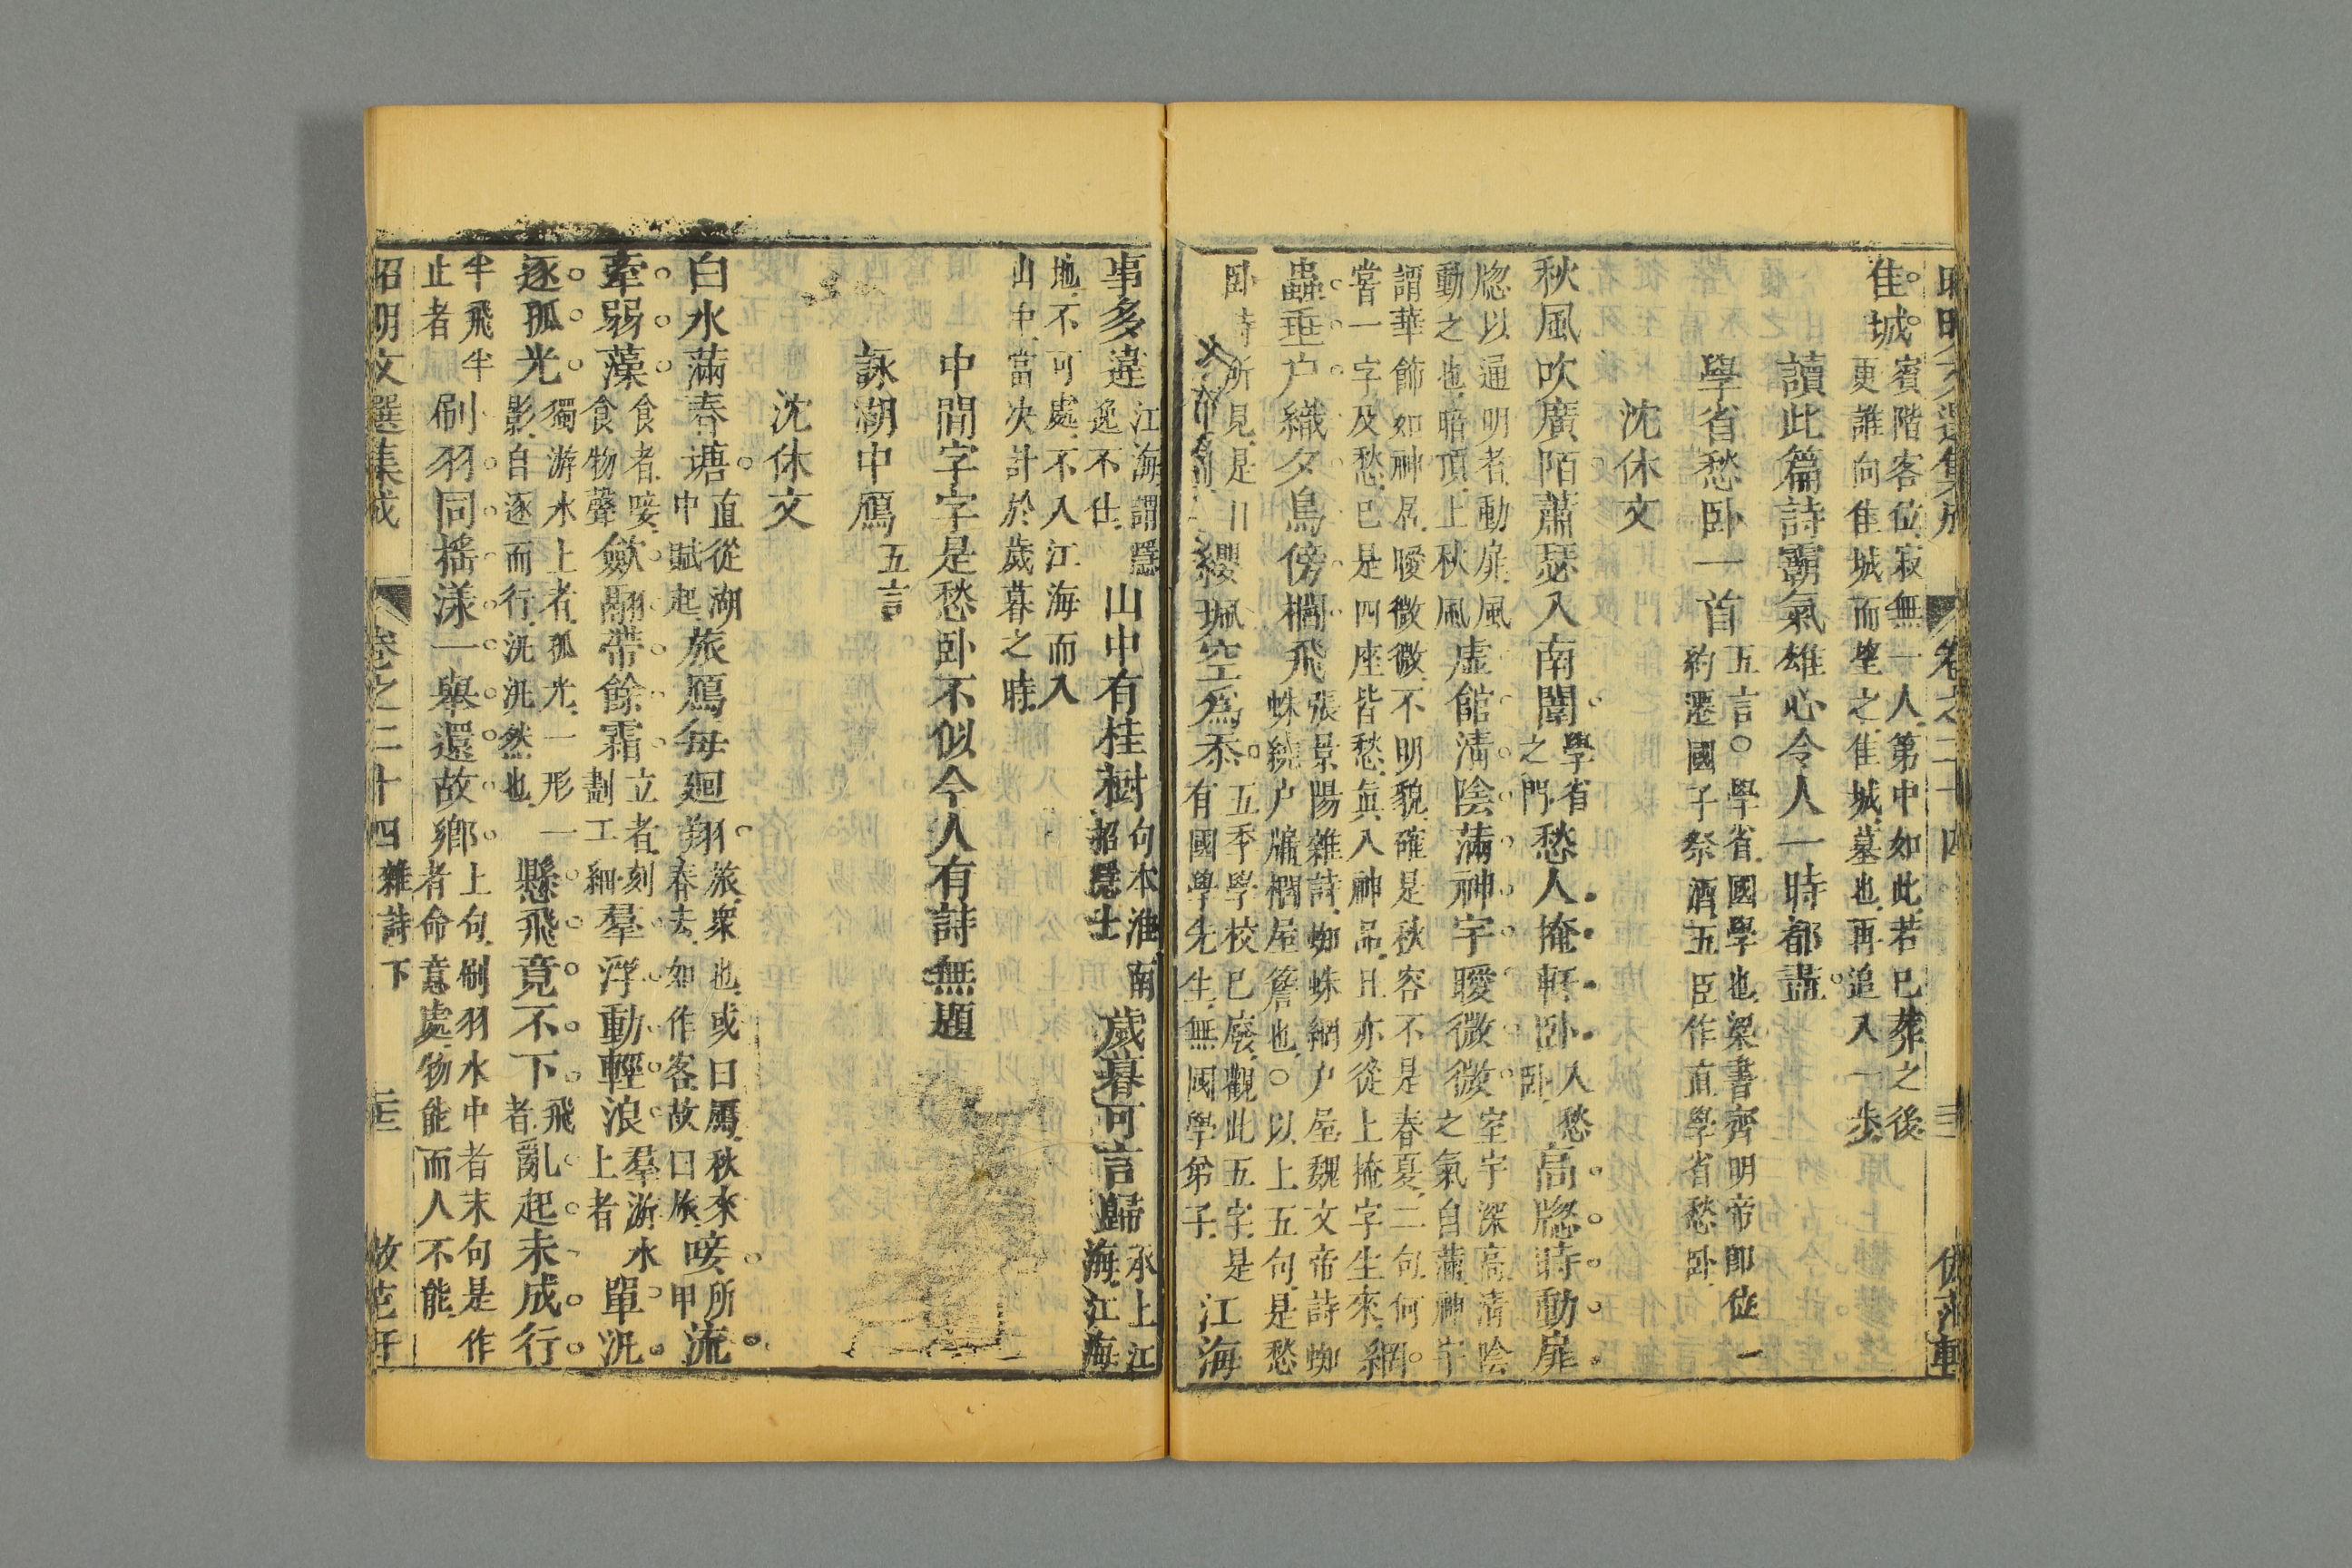 昭明文選集成 卷之二十四 三 倣范軒
佳城賓階客位寂無一人第中如此若已葬之後更誰向佳城而望之佳城墓也再追入一步
讀此篇詩霸氣雄心令人一時都盡
學省愁卧一首五言○學省國學也梁書齊明帝卽位約遷國子祭酒五臣作直學省愁卧
沈休文
秋風吹廣陌蕭瑟入南闈學省之門愁人掩軒卧人愁卧高牕時動扉
牕以通明者動扉風動之也暗頂上秋風虛館清陰滿神宇曖微微室宇深高清陰之氣自滿神宇
謂華飾如神居曖微微不明貌確是秋容不是春夏二句何嘗一字及愁已是四座皆愁眞入神品且亦從上掩字生來網
蟲垂户織夕鳥傍櫚飛張景陽雜詩蜘蛛網户屋魏文帝詩蜘蛛繞户牖櫚屋簷也○以上五句是愁
卧時所見是纓珮空爲忝五季學校已廢觀此五字是有國學先生無國學弟子江海
事多違江海謂隱逸不仕山中有桂樹句本淮南招隱士歲暮可言歸承上江海江海
地不可處不入江海而入山中當决計於歲暮之時
中間字字是愁卧不似今人有詩無題
詠湖中鴈五言
沈休文
白水滿春塘直從湖中賦起旅鴈每迴翔旅衆也或曰鴈秋來春去如作客故曰旅唼所甲流
牽弱藻食者唼食物聲歛翮帶餘霜立者刻劃工細羣浮動輕浪羣游水上者單汎
逐孤光獨游水上者孤光一形一影自逐而行汎汎然也懸飛竟不下飛者亂起未成行
半飛半止者刷羽同搖漾一舉還故鄉上句刷羽水中者末句是作者命意處物能而人不能
昭明文選集成 卷之二十四 雜詩下 三 倣范軒